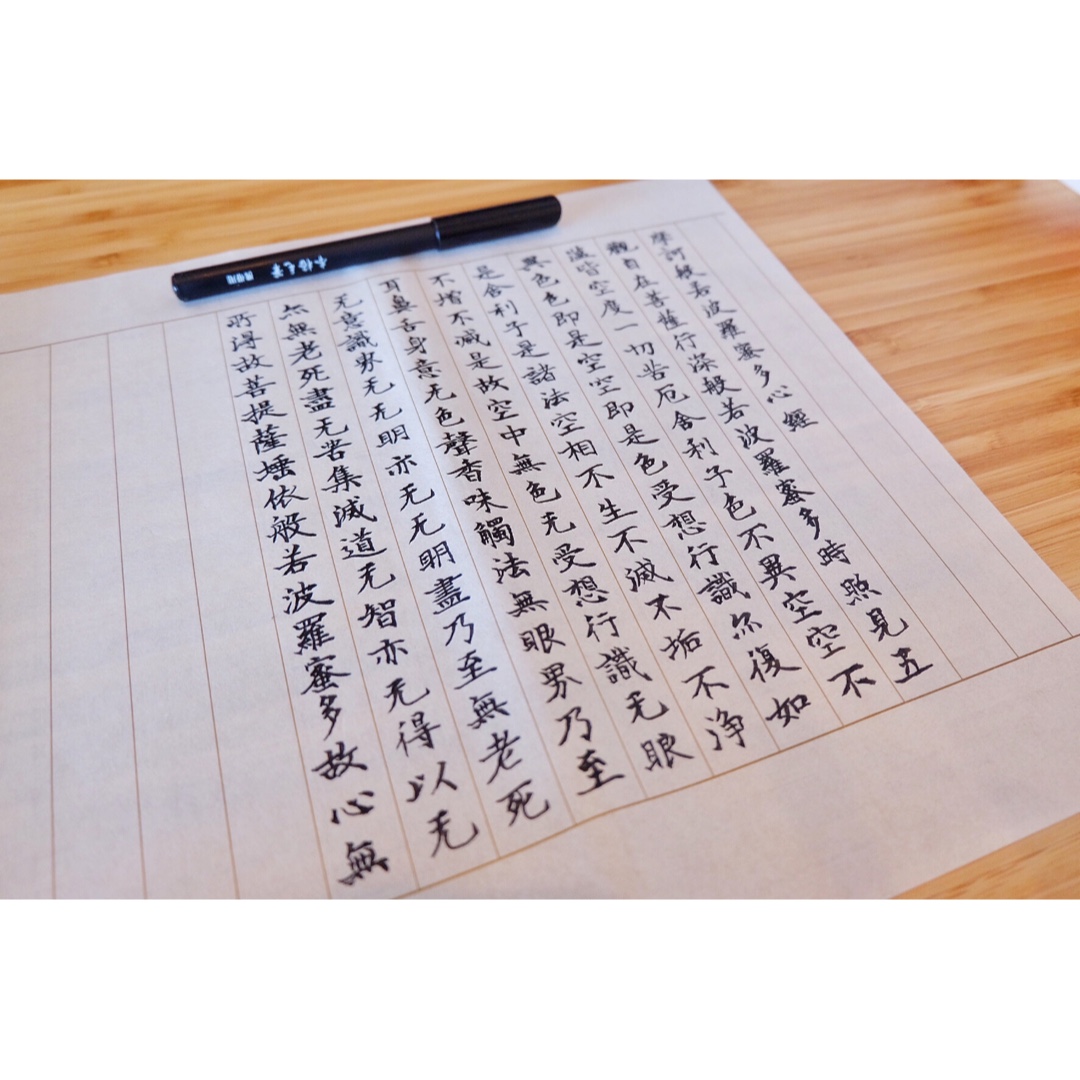 摩訶般若波羅蜜多心經
觀自在菩薩行深般若波羅蜜多時照見五
蘊皆空度一切苦厄舍利子色不異空空不
異色色即是空空即是色受想行識亦復如
是舍利子是諸法空相不生不滅不垢不净
不增不減是故空中無色无受想行識无眼
耳鼻舌身意无色聲香味觸法無眼界乃至
无意識界无无明亦无无明盡乃至無老死
亦無老死盡无苦集滅道无智亦无得以无
所得故菩提薩埵依般若波羅蜜多故心無